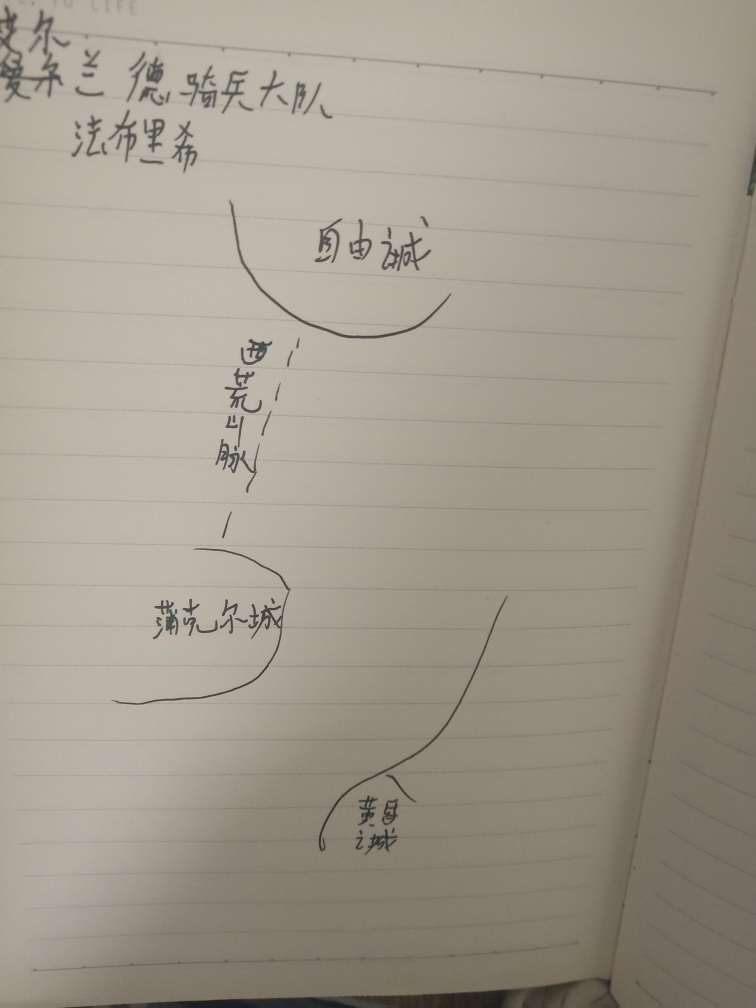 TO LIFE
艾尔
爱尔兰德骑兵大队
法布里希
自由之城
西荒山脉
蒲克尔城
黄昏
之城